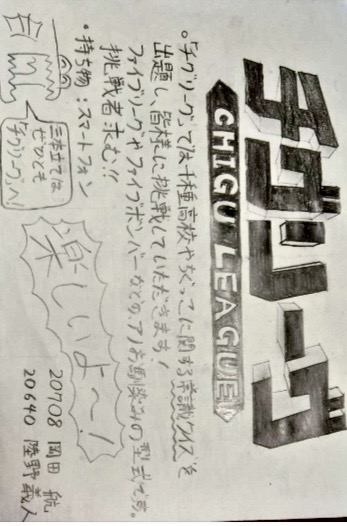 チグリーグ
CHIGU LEAGUE
。「チグリーグ」では千種高校やちぐっこに関する常識クイズを
出題し、皆様に挑戦していただきます!
ファイブリーグやファイブボンバーなどの、アノお馴染みの型式です。
挑戦者求む!!
・持ち物:スマートフォン
三本立ては
ぜひとも
「チグリーグ」へ!
楽しいよ〜!
20708 岡田 航
20640 陸野義人